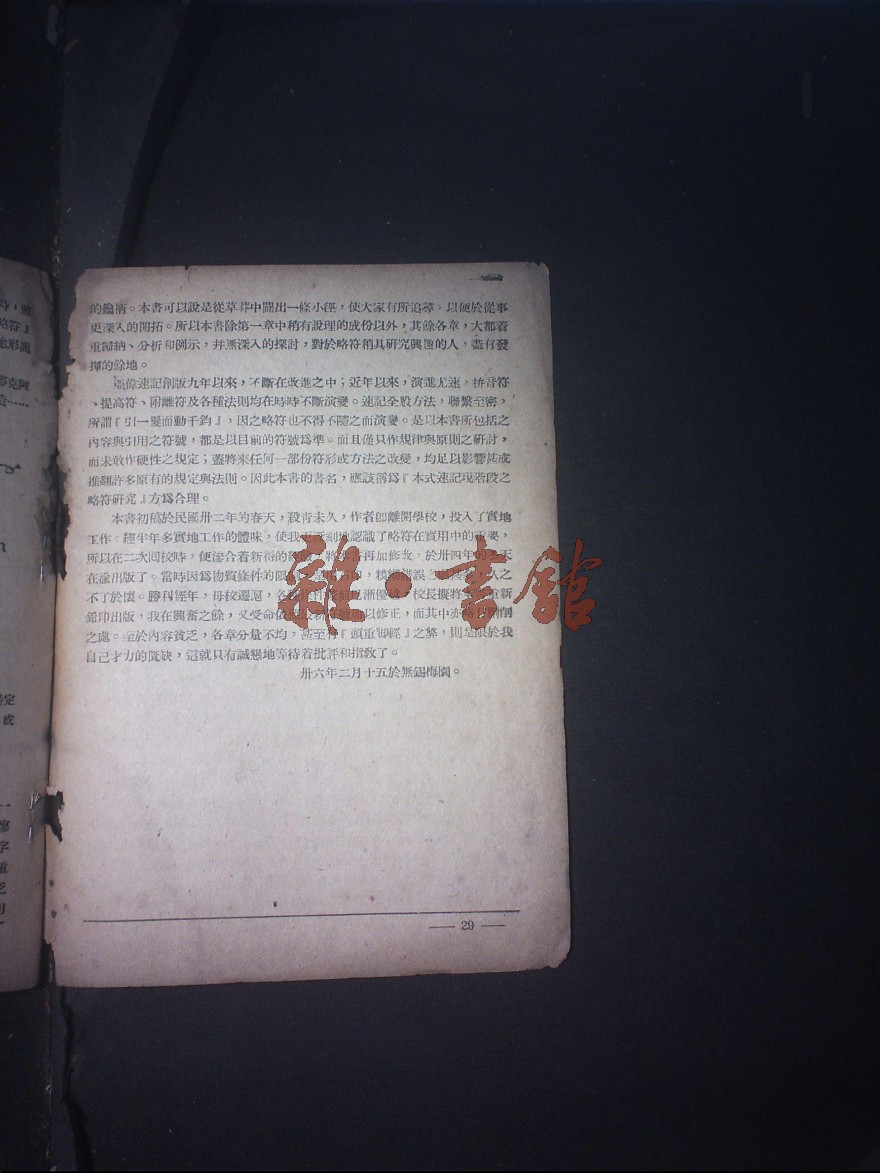 的鑰柄。本書可以說是從草莽中闢出一條小徑，使大家有所追尋，以便於從事
更深入的開拓。所以本書除第一章中稍有說理的成份以外，其餘各章，大都着
重歸納、分析和例示，并無深入的探討，對於略符稍具研究興趣的人，儘有發
揮的餘地。
亞偉速記創版九年以來，不斷在改進之中；近年以來，演進尤速，拚音符
、提高符、附離符及各種法則均在時時不斷演變。速記全般方法，聯繫至密，
所謂『引一髮而動千鈞』，因之略符也不得不隨之而演變。是以本書所包括之
內容與引用之符號，都是以目前的符號爲準。而且僅只作規律與原則之研討，
而未敢作硬性之規定；蓋將來任何一部份符形或方法之改變，均足以影響甚或
推翻許多原有的規定與法則。因此本書的書名，應該稱爲『本式速記現階段之
略符研究』方爲合理。
本書初稿於民國卅二年的春天，殺青未久，作者即離開學校，投入了實地
工作。經半年多實地工作的體味，使我更深刻地認識了略符在實用中的重要，
所以在二次回校時，便滲合着新得的 將 再加修改，於卅四年的 天
在渝出版了。當時因爲物質條件的限 石印，模糊錯誤 之
不了於懷。勝利經年，母校遷滬，各 漸優 校長擬將 重新
鉛印出版，我在興奮之餘，又受命依 加以修正，而其中亦略 削
之處。至於內容貧乏，各章分量不均，甚至有『頭重脚輕』之弊，則是限於我
自己才力的匱缺，這就只有誠懇地等待着批評和指教了。
卅六年二月十五於無錫梅園。
— 29 —
雜·書館